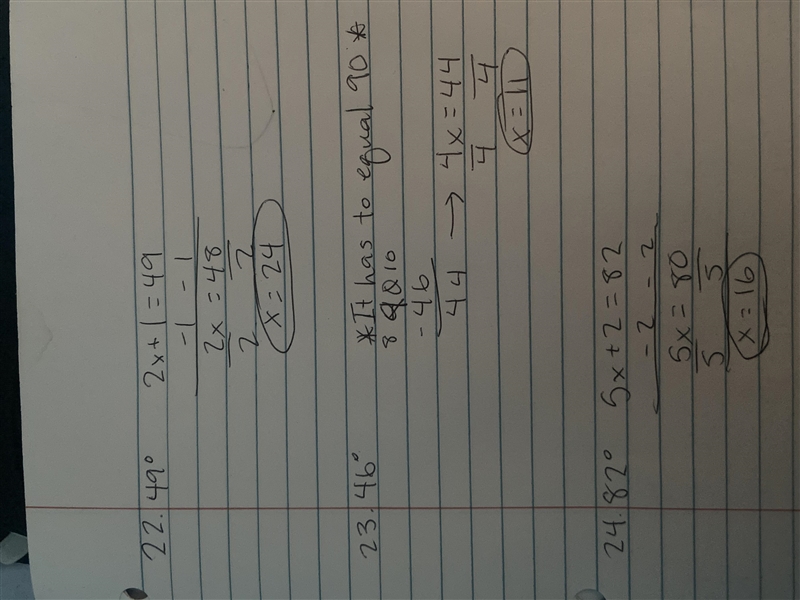 22. 49° 2x+1=49
-1 -1
2x = 48
2 2
x = 24
23. 46° *It has to equal 90*
8 9010
-46
44 → 4x = 44
4 4
x = 11
24. 82° 5x+2=82
-2 -2
5x = 80
5 5
x = 16